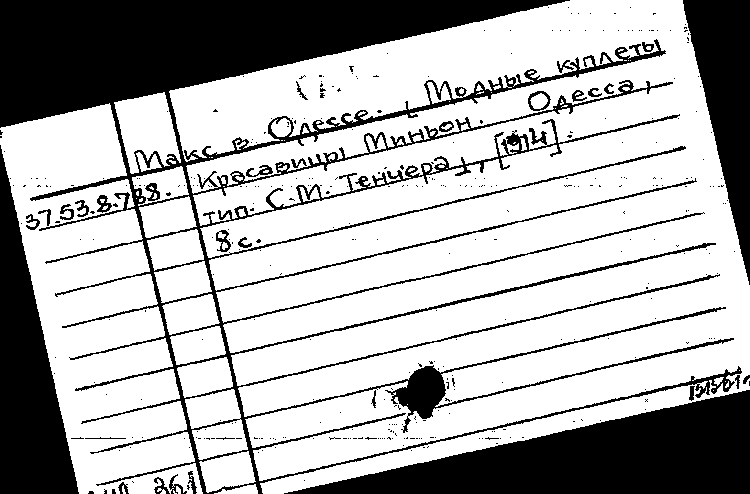 Макс в Одессе. , Модные куплеты
37.53.8.788. Красавицы Миньон. Одесса,
тип. С. М. Тенцера, [1914].
8 с.
361